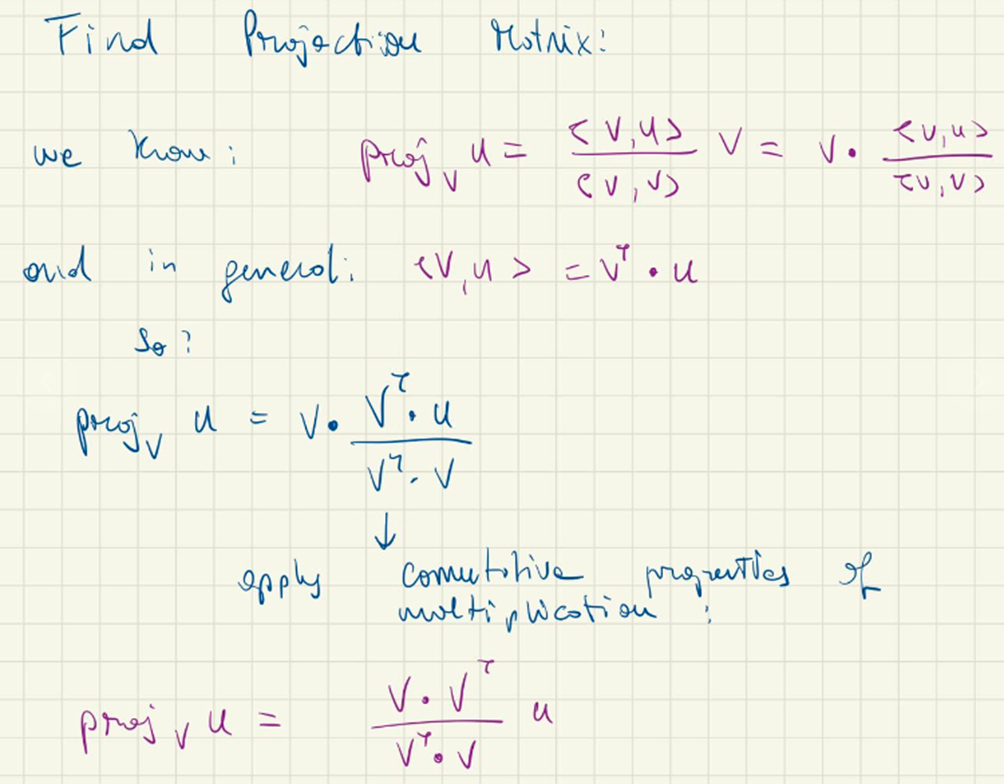 Find Projection Matrix:
we know: proj_v u = <v,u>/<v,v> v = v · <v,u>/<v,v>
and in general: <v,u> = v^T · u
so:
proj_v u = v · (v^T · u)/(v^T · v)
↓
apply comutative properties of
multiplication :
proj_v u = (v · v^T)/(v^T · v) u